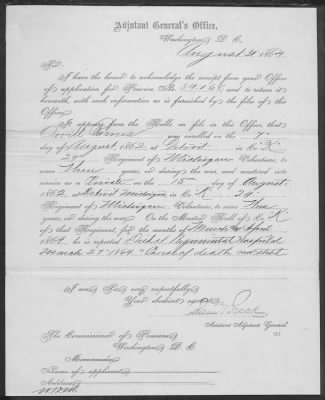 Adjutant General's Office,
Washington, D. C.
August 2, 1864.
Sir:
I have the honor to acknowledge the receipt from your Office
of application for Pension No. and to return it
herewith, with such information as is furnished by the files of this
Office.
It appears from the Rolls on file in this Office, that
was enrolled on the 7"
day of August, 1862, at Detroit in Co. K,
24" Regiment of Michigan Volunteers, to
serve Three years, or during the war, and mustered into
service as a Private on the 15 day of August,
1862, at Detroit Michigan in Co. K, 24"
Regiment of Michigan Volunteers, to serve Three
years, or during the war. On the Muster Roll of Co. K
of that Regiment, for the months of March & April
1864, he is reported Regimental Hospital
March 27 1864. Cause of death not stated
I am, Sir, very respectfully,
Your obedient servant,
Assistant Adjutant General.
The Commissioner of Pensions,
Washington, D. C.
Memoranda:
Name of applicant,
Address,